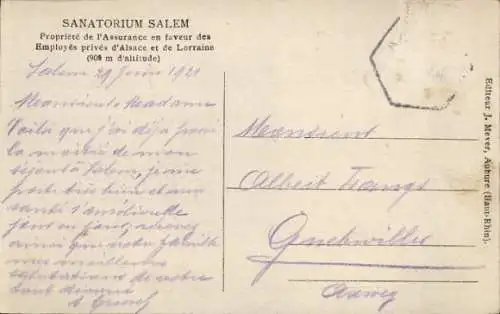 SANATORIUM SALEM
Propriété de l'Assurance en faveur des
Employés privés d'Alsace et de Lorraine
(908 m d'altitude)
Salem 29 Juin 1921
Voilà que j'ai déjà passé
la moitié de mon
séjour à Salem, je me
porte très bien et ma
santé s'améliore
jour en jour, recevez
ainsi que votre famille
mes meilleures
salutations de votre
tout dévoué
Monsieur
Albert
Guebwiller
Editeur J. Meyer, Aubure (Haut-Rhin).